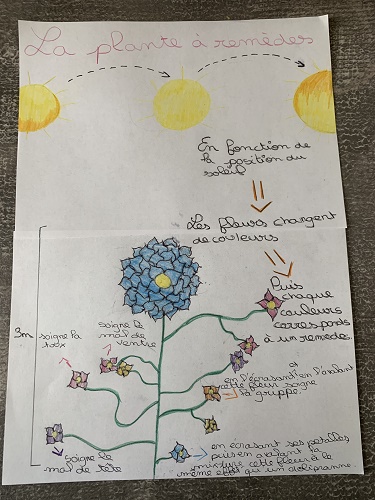 La plante à remèdes
En fonction de
la position du
soleil
Les fleurs changent
de couleurs
Puis
chaque
couleurs
corresponds
à un remèdes.
3m
soigne la
toux
soigne le
mal de
ventre
en l'écrasant en l'avalant
cette fleur soigne
la gruppe.
soigne le
mal de tête
en écrasant ses petalles
puis en avalant la
mixture cette fleur à le
même effet qu'un doliprane.